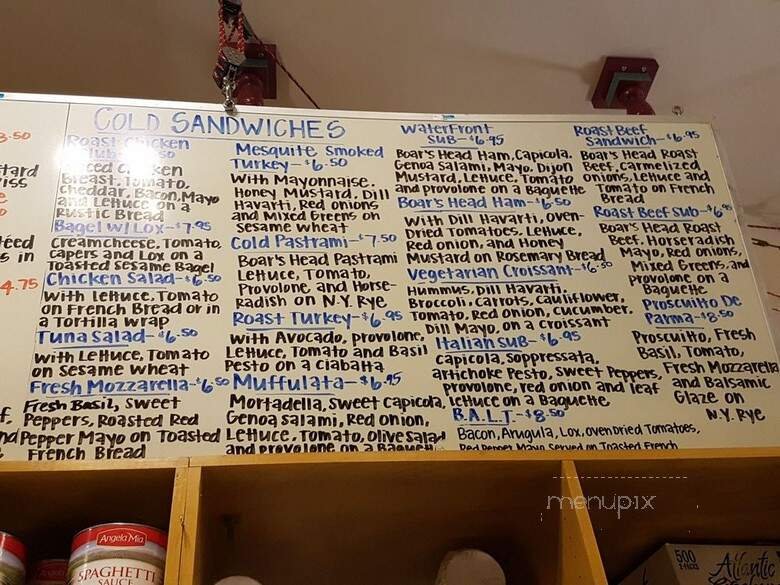 COLD SANDWICHES
3.50
tard
iss
teed
s in
4.75
f,
nd
Roast Chicken
Club 50
Chicken
Breast, Tomato,
Cheddar, Bacon, Mayo
and Lettuce on a
Rustic Bread
Bagel w/ Lox-$7.95
Creamcheese, Tomato,
Capers and Lox on a
Toasted Sesame Bagel
Chicken Salad-$6.50
With Lettuce, Tomato
on French Bread or in
a Tortilla Wrap
Tuna Salad-$6.50
with Lettuce, Tomato
on Sesame Wheat
Fresh Mozzarella-$6.50
Fresh Basil, Sweet
Peppers, Roasted Red
Pepper Mayo on Toasted
French Bread
Mesquite Smoked
Turkey-$6.50
With Mayonnaise,
Honey Mustard, Dill
Havarti, Red onions
and Mixed Greens on
Sesame wheat
Cold Pastrami-$7.50
Boar's Head Pastrami
Lettuce, Tomato,
Provolone and Horse-
Radish on N.Y. Rye
Roast Turkey-$6.95
With Avocado, provolone,
Lettuce, Tomato and Basil
Pesto on a Ciabatta
Muffulata-$6.95
Mortadella, Sweet Capicola,
Genoa Salami, Red Onion,
Lettuce, Tomato, Olive Salad
and provolone on a Baguette
Waterfront
Sub-$6.95
Boar's Head Ham, Capicola,
Genoa Salami, Mayo, Dijon
Mustard, Lettuce, Tomato
and provolone on a Baguette
Boar's Head Ham-$6.50
With Dill Havarti, Oven-
Dried Tomatoes, Lettuce,
Red onion, and Honey
Mustard on Rosemary Bread
Vegetarian Croissant-$6.50
Hummus, Dill Havarti,
Broccoli, Carrots, Cauliflower,
Tomato, Red Onion, Cucumber,
Dill Mayo, on a Croissant
Italian Sub-$6.95
Capicola, Soppressata,
artichoke Pesto, Sweet Peppers,
provolone, red onion and leaf
lettuce on a Baguette
B.A.L.T.-$8.50
Bacon, Arugula, Lox, Oven Dried Tomatoes,
Red Pepper Mayo Served on Toasted French
Roast Beef
Sandwich-$6.95
Boar's Head Roast
Beef, Carmelized
Onions, Lettuce and
Tomato on French
Bread
Roast Beef Sub-$6.95
Boar's Head Roast
Beef, Horseradish
Mayo, Red onions,
Mixed Greens, and
provolone on a
Baguette.
Prosciutto De
Parma-$8.50
Prosciutto, Fresh
Basil, Tomato,
Fresh Mozzarella
and Balsamic
Glaze on
N.Y. Rye
menupix
Angela Mia
SPAGHETTI
SAUCE
500
Atlantic